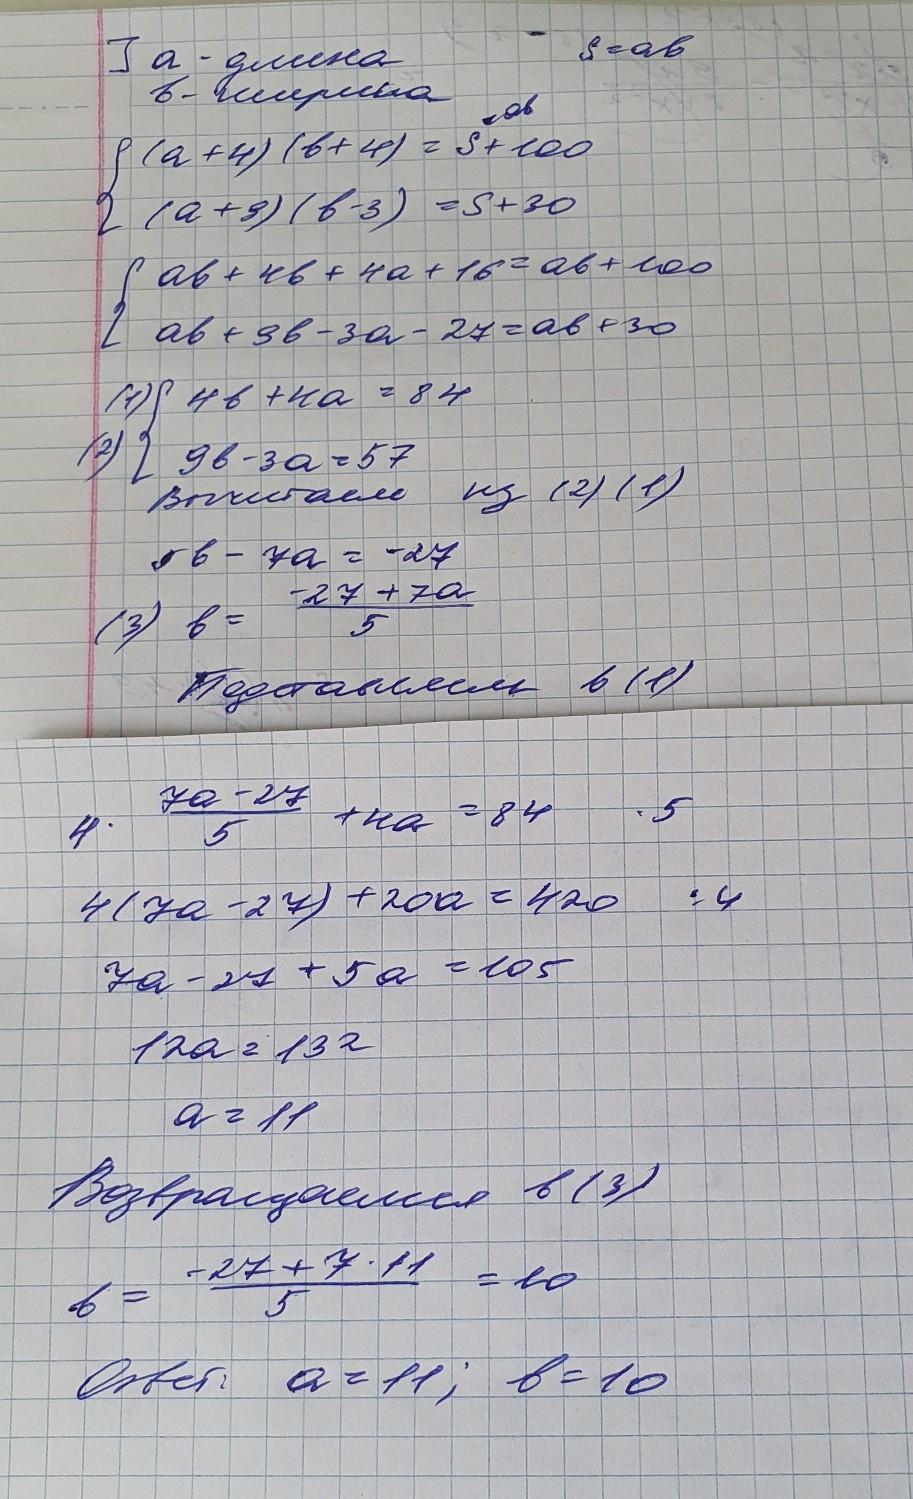 ] a - длина - S = ab
b - ширина
ab
(a + 4) (b + 4) = S + 100
(a + 9) (b - 3) = S + 30
ab + 4b + 4a + 16 = ab + 100
ab + 9b - 3a - 27 = ab + 30
(1) 4b + 4a = 84
(2) 9b - 3a = 57
Вычитаем из (2) (1)
5b - 7a = -27
(3) b = (-27 + 7a)/5
Подставляем в (1)
4 · (7a - 27)/5 + 4a = 84 · 5
4(7a - 27) + 20a = 420 : 4
7a - 27 + 5a = 105
12a = 132
a = 11
Возвращаемся в (3)
b = (-27 + 7 · 11)/5 = 10
Ответ: a = 11; b = 10